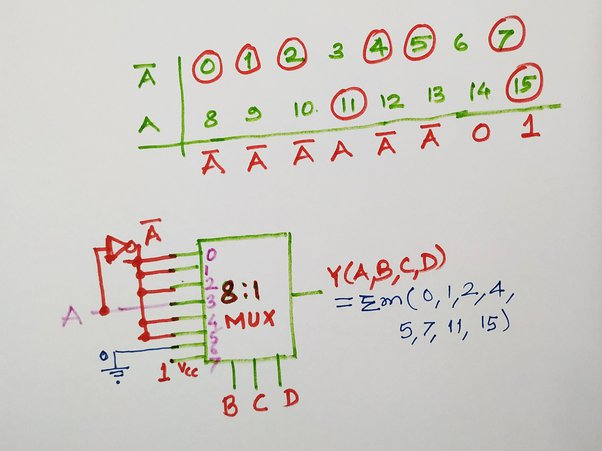 A̅ 0 1 2 3 4 5 6 7
A 8 9 10 11 12 13 14 15
A̅ A̅ A̅ A A̅ A̅ 0 1
A̅
A
0
1 Vcc
0
1
2
3
4
5
6
7
8:1
MUX
B C D
Y(A,B,C,D)
= Σm(0,1,2,4,
5,7,11,15)